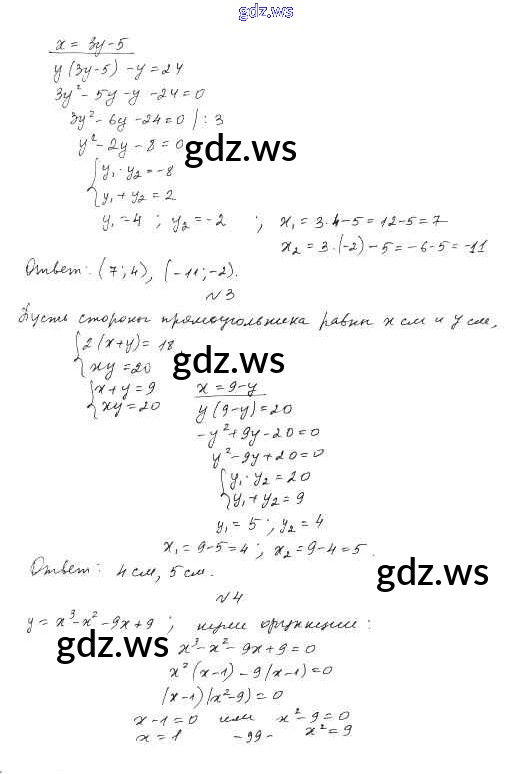 gdz.ws
x = 3y-5
y(3y-5) -y = 24
3y² - 5y - y - 24 = 0
3y² - 6y - 24 = 0 /: 3
y² - 2y - 8 = 0
gdz.ws
{ y₁ · y₂ = -8
y₁ + y₂ = 2
y₁ = 4 ; y₂ = -2 ; x₁ = 3·4-5 = 12-5 = 7
x₂ = 3·(-2) - 5 = -6-5 = -11
Ответ: (7; 4), (-11; -2).
№3
Пусть стороны прямоугольника равны x см и y см,
{ 2(x+y) = 18
xy = 20
gdz.ws
{ x+y = 9
xy = 20
x = 9-y
y(9-y) = 20
-y² + 9y - 20 = 0
y² - 9y + 20 = 0
{ y₁ · y₂ = 20
y₁ + y₂ = 9
y₁ = 5 ; y₂ = 4
x₁ = 9-5 = 4 ; x₂ = 9-4 = 5.
Ответ: 4 см, 5 см.
gdz.ws
№4
y = x³ - x² - 9x + 9 ; нули функции:
gdz.ws
x³ - x² - 9x + 9 = 0
x²(x-1) - 9(x-1) = 0
(x-1)(x²-9) = 0
x-1 = 0 или x² - 9 = 0
x = 1 -99- x² = 9